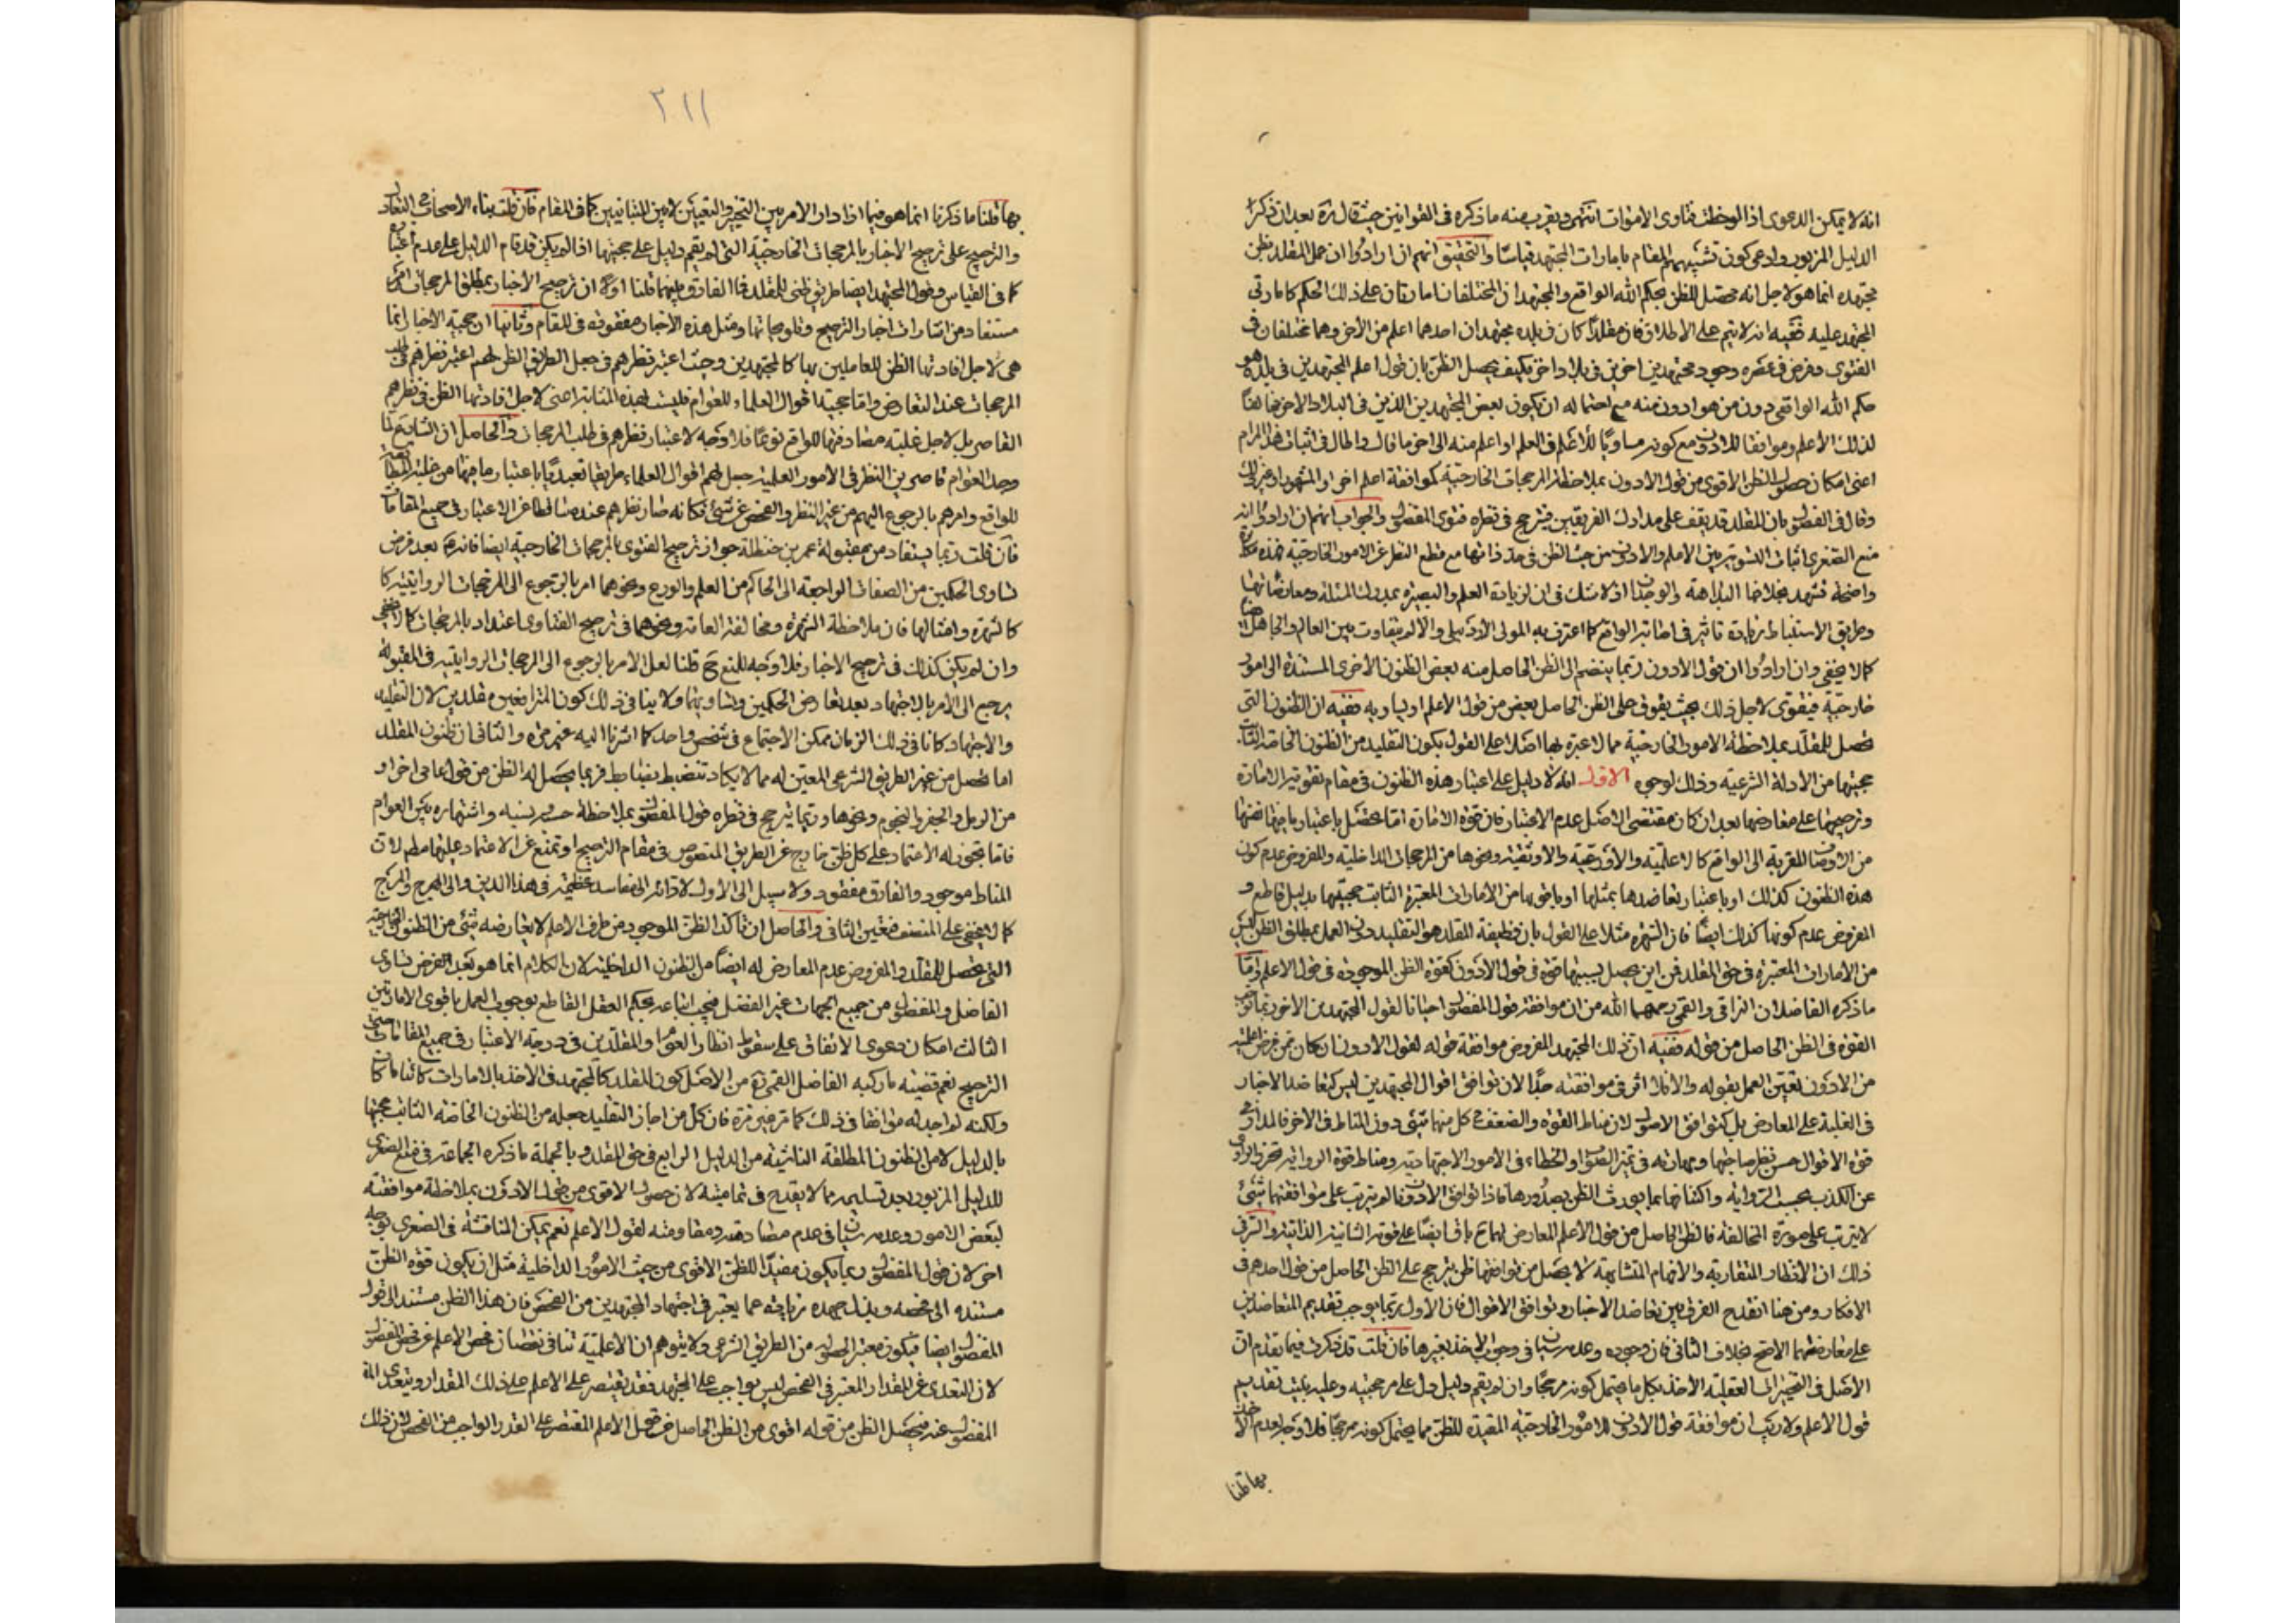 انه لا يمكن الدعوى اذا لوحظت فتاوى الاموات انتهى ويقرب منه ما ذكره في القوانين حيث قال ره بعد ان ذكر
الدليل المزبور وادعى كون تشبيههم المقام بامارات المجتهد قياسا والتحقيق انهم ان ارادوا ان عمل المقلد بظن
مجتهده انما هو لاجل انه محصل للظن بحكم الله الواقع والمجتهدان المختلفان امارتان على ذلك الحكم كامارتي
المجتهد عليه ففيه انه لا يتم على الاطلاق فان مقلدا كان في بلده مجتهدان احدهما اعلم من الاخر وهما مختلفان في
الفتوى وفرض في عصره وجود مجتهدين اخرين في بلاد اخر فكيف يحصل الظن بان قول اعلم المجتهدين في بلده هو
حكم الله الواقعي دون من هو ادون منه مع احتماله ان يكون بعض المجتهدين الذين في البلاد الاخر مخالفا
لذلك الأعلم وموافقا للادون مع كونه مساويا للأعلم في العلم او اعلم منه الى اخر ما قال واطال في اثبات هذا المرام
اعني امكان حصول الظن الاقوى من قول الادون بملاحظة المرجحات الخارجية كموافقة اعلم اخر او المشهور او غير ذلك
وقال في الفصول بان المقلد قد يقف على مدارك الفريقين فيترجح في نظره فتوى المفضول والجواب انهم ان ارادوا انه
منع الصغرى اثبات التسوية بين الاعلم والادون من حيث الظن في حد ذاتها مع قطع النظر عن الامور الخارجية فهذه مكابرة
واضحة تشهد بخلافها البداهة والوجدان اذ لا شك في ان لزيادة العلم والبصيرة بمدرك المسئلة ومعارضاتها
وطريق الاستنباط زيادة تاثير في اصابة الواقع كما اعترف به المولى الاردبيلي والا لم يتفاوت بين العالم والجاهل
كما لا يخفى وان ارادوا ان قول الادون ربما ينضم الى الظن الحاصل منه بعض الظنون الأخرى المستندة الى امور
خارجية فيقوى لاجل ذلك بحيث يفوق على الظن الحاصل بعض من قول الأعلم او يساويه ففيه ان الظنون التي
تحصل للمقلد بملاحظة الامور الخارجية مما لا عبرة بها اصلا على القول بكون التقليد من الظنون الخاصة الثابت
حجيتها من الادلة الشرعية وذلك لوجوه الاول انه لا دليل على اعتبار هذه الظنون في مقام تقوية الامارة
وترجيحها على معارضها بعد ان كان مقتضى الاصل عدم الاعتبار فان قوة الامارة اما تحصل باعتبار ما في نفسها
من الاوصاف المقربة الى الواقع كالاعلمية والأورعية والاوثقية ونحوها من المرجحات الداخلية والمفروض عدم كون
هذه الظنون كذلك او باعتبار تعاضدها بمثلها او باقوى منها من الامارات المعتبرة الثابت حجيتها بدليل قاطع و
المفروض عدم كونها كذلك ايضا فان الشهرة مثلا على القول بان وظيفة المقلد هو التقليد دون العمل بمطلق الظن ليس
من الامارات المعتبرة في حق المقلد فمن اين يحصل بسببها قوة في قول الادون كقوة الظن الموجودة في قول الاعلم وما
ما ذكره الفاضلان النراقي والقمي رحمهما الله من ان موافقة قول المفضول احيانا لقول المجتهدين الاخر ربما توجب
القوة في الظن الحاصل من قوله ففيه ان ذلك المجتهد المفروض موافقة قوله لقول الادون ان كان ممن فرض اعلميته
من الادون تعين العمل بقوله والا فلا اثر في موافقته جدا لان توافق اقوال المجتهدين ليس كتعاضد الاخبار
في الغلبة على المعارض بل كتوافق الاصول لان مناط القوة والضعف في كل منهما شئ دون المناط في الاخر فالمدار في
قوة الاقوال حسن نظر صاحبها ومهارته في تميز الصواب والخطاء في الامور الاجتهادية ومناط قوة الرواية تحرز الراوى
عن الكذب بحسب الرواية واكتفائها بما يورث الظن بصدورها فاذا توافق الادون فالم يترتب على موافقتهما شئ
لا يترتب على صورة المخالفة فالظن الحاصل من قول الأعلم المعارض لهما ح باق ايضا على قوته الشانية الذاتية والسر في
ذلك ان الأنظار المتقاربة والافهام المتشابهة لا يحصل من توافقها ظن يترجح على الظن الحاصل من قول احدهم في
الافكار ومن هنا انقدح الفرق بين تعاضد الاخبار وتوافق الاقوال فان الاول ربما يوجب تقديم المتعاضدين
على معارضهما الاصح بخلاف الثاني فان وجوده وعدمه سيان في وجوب الاخذ بغيرها فان قلت قد ذكرت فيما تقدم ان
الأصل في التخييرات العقلية الأخذ بكل ما يحتمل كونه مرجحا وان لم يقم دليل دل على مرجحيته وعليه يبتنى تقديم
قول الاعلم ولا ريب ان موافقة قول الادون للامور الخارجية المفيدة للظن مما يحتمل كونه مرجحا فلا وجه لعدم الأخذ
بها قلنا
٢١١
بها قلنا ما ذكرنا انما هو فيما اذا دار الامر بين التخيير والتعيين لا بين المتباينين كما في المقام فان قلت بناء الاصحاب في التعادل
والترجيح على ترجيح الاخبار بالمرجحات الخارجية التي لم يقم دليل على حجيتها اذا لم يكن قد قام الدليل على عدم اعتبارها
كما في القياس وقول المجتهد ايضا طريق ظني للمقلد فما الفارق بينهما قلنا اولا ان ترجيح الأخبار بمطلق المرجحات امر
مستفاد من اشارات اخبار الترجيح وتلويحاتها ومثل هذه الأخبار مفقودة في المقام وثانيا ان حجية الاخبار انما
هي لاجل افادتها الظن للعاملين بها كالمجتهدين وحيث اعتبر نظرهم في جعل الطريق الظني لهم اعتبر نظرهم في طلب
المرجحات عند التعارض واما حجية اقوال العلماء للعوام فليست بهذه المثابة اعني لاجل افادتها الظن في نظرهم
القاصر بل لاجل غلبة مصادفتها للواقع نوعا فلا وجه لاعتبار نظرهم في طلب المرجحات والحاصل ان الشارع لما
وجد العوام قاصرين النظر في الأمور العلمية جعل لهم اقوال العلماء طريقا تعبديا باعتبار ما فيها من غلبة المطابقة
للواقع وامرهم بالرجوع اليهم من غير النظر والفحص عن شئ فكانه صار نظرهم عنده ساقطا عن الاعتبار في جميع المقامات
فان قلت ربما يستفاد من مقبولة عمر بن حنظلة جواز ترجيح الفتوى بالمرجحات الخارجية ايضا فانه ع بعد فرض
تساوى الحكمين من الصفات الراجعة الى الحاكم من العلم والورع ونحوهما امر بالرجوع الى المرجحات الروايتية كا
كالشهرة وامثالها فان ملاحظة الشهرة ومخالفة العامة ونحوهما في ترجيح الفتاوى اعتداد بالمرجحات كما لا يخفى
وان لم يكن كذلك في ترجيح الاخبار فلا وجه للمنع ح قلنا لعل الامر بالرجوع الى المرجحات الروايتية في المقبولة
يرجع الى الأمر بالاجتهاد بعد تعارض الحكمين وتساويهما ولا ينافي ذلك كون المترافعين مقلدين لان التقليد
والاجتهاد كانا في ذلك الزمان ممكن الاجتماع في شخص واحد كما اشرنا اليه غير مرة والثاني ان ظنون المقلد
اما تحصل من غير الطريق الشرعي المعين له مما لا يكاد تنضبط بضابط فربما يحصل له الظن من قول عامى اخر او
من الرمل والجفر والنجوم ونحوها وربما يترجح في نظره قول المفضول بملاحظة حسبه ونسبه واشتهاره بين العوام
فاما تجوز له الاعتماد على كل ظن خارج عن الطريق المنصوص في مقام الترجيح او تمنع عن الاعتماد عليها مطلقا لان
المناط موجود والفارق مفقود ولا سبيل الى الأول لادائه الى مفاسد عظيمة في هذا الدين والى الهرج والمرج
كما لا يخفى على المنصف فتعين الثاني والحاصل ان تاكد الظن الموجود من طرف الاعلم لا يعارضه شئ من الظنون الخارجية
التي تحصل للمقلد والمفروض عدم المعارض له ايضا من الظنون الداخلية لان الكلام انما هو بعد الفرض تساوى
الفاضل والمفضول من جميع الجهات غير الفضل فيجب اتباعه بحكم العقل القاطع بوجوب العمل باقوى الامارتين
الثالث امكان دعوى الاتفاق على سقوط انظار العوام والمقلدين في درجة الاعتبار في جميع المقامات حتى
الترجيح نعم قضية ما ركبه الفاضل القمي ره من الأصل كون المقلد كالمجتهد في الأخذ بالامارات كائنا ما كا
ولكنه لم اجد له موافقا في ذلك كما مر غير مرة فان كل من اجاز التقليد جعله من الظنون الخاصة الثابت حجيتها
بالدليل لا من الظنون المطلقة الناشية من الدليل الرابع في حق المقلد وبالجملة ما ذكره الجماعة في منع الصغرى
للدليل المزبور بعد تسليمه مما لا يقدح في تماميته لان حصول الاقوى من قول الادون بملاحظة موافقته
لبعض الامور وعدمه سيان في عدم مصادمته ومقاومته لقول الأعلم نعم يمكن المناقشة في الصغرى بوجه
اخر لان قول المفضول ربما يكون مفيدا للظن الاقوى من حيث الامور الداخلية مثل ان يكون قوة الظن
مستنده الى فحصه وبذل جهده زيادة عما يعتبر في اجتهاد المجتهدين من الفحص فان هذا الظن مستند الى قول
المفضول ايضا فيكون معتبر الحصوله من الطريق الشرعي ولا يتوهم ان الأعلمية تنافي نقصان فحص الأعلم عن فحص المفضول
لان التعدى عن المقدار المعتبر في الفحص ليس بواجب على المجتهد فقد يقتصر على الاعلم على ذلك المقدار ويتعدى
المفضول عنه فيحصل الظن من قوله اقوى من الظن الحاصل من قول الاعلم المقتصر على القدر الواجب من الفحص لان ذلك